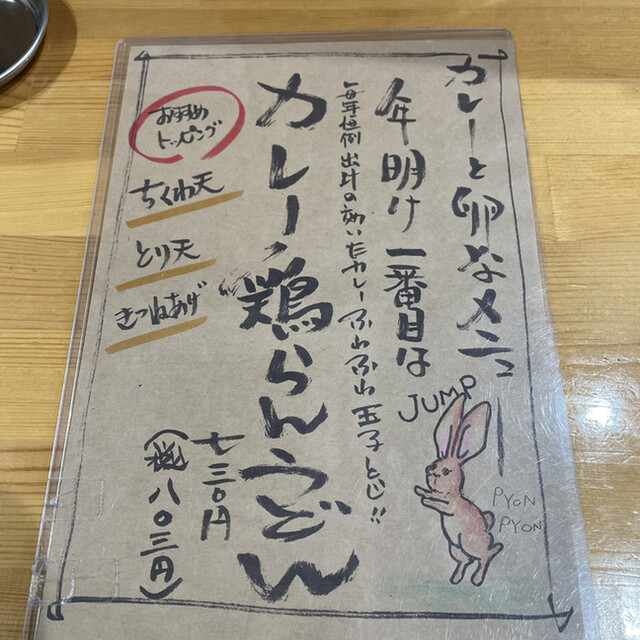 カレーと卵なメニュー
年明け一番目は
毎年恒例 出汁の効いたカレーふわふわ玉子とじ!!
カレー鶏らんうどん
七三〇円
(税込八〇三円)
おすすめ
トッピング
ちくわ天
とり天
きつねあげ
JUMP
PYON
PYON